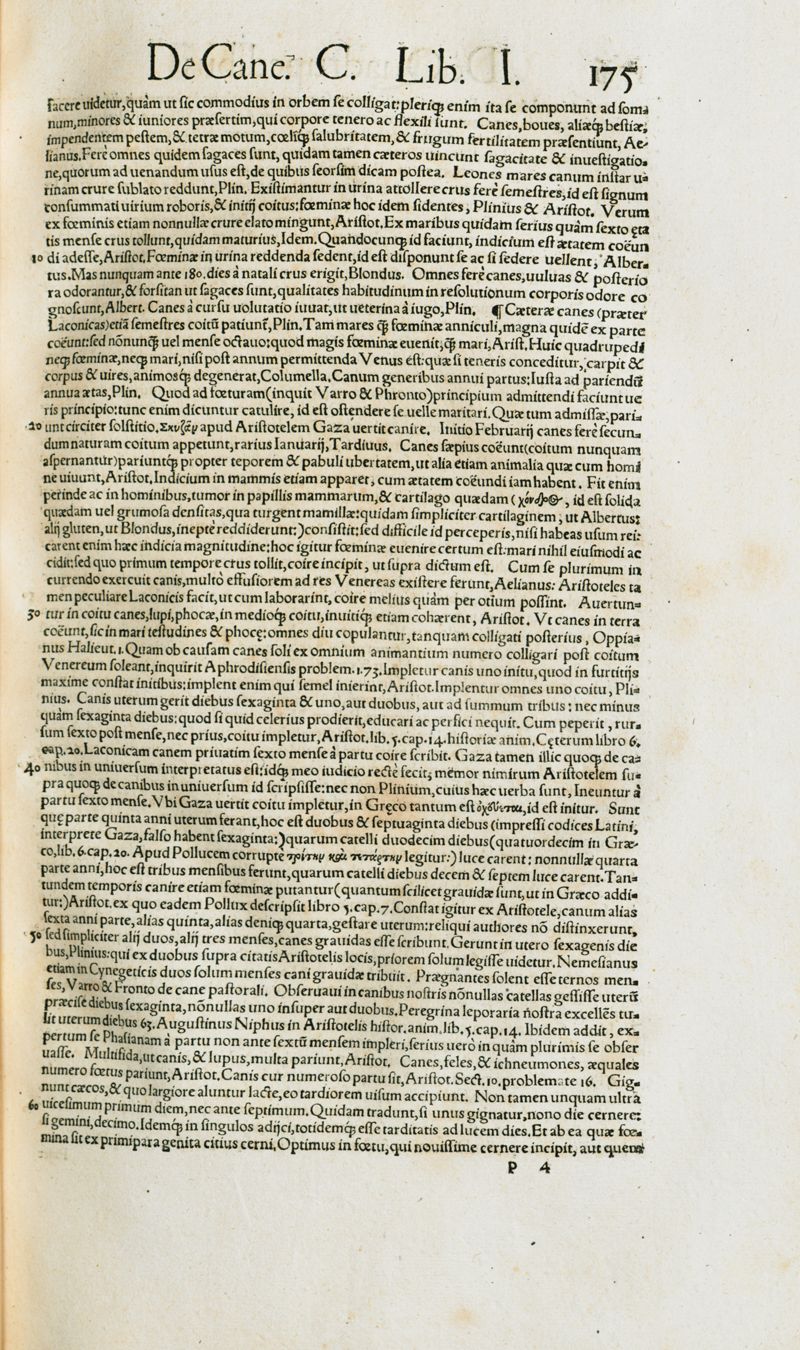 De Cane. C. Lib. I. 175
facere uidetur, quàm ut sic commodius in orbem se colligat: pleriq; enim ita se componunt ad som⸗
num, minores & iuniores præsertim, qui corpore tenero ac flexili sunt. Canes, boues, aliæq; bestiæ,
impendentem pestem, & tetræ motum, cœliq; salubritatem, & frugum fertilitatem præsentiunt, Ae⸗
lianus. Ferè omnes quidem sagaces sunt, quidam tamen cæteros uincunt sagacitate & inuestigatio⸗
ne, quorum ad uenandum usus est, de quibus seorsim dicam postea. Leones mares canum instar u⸗
rinam crure sublato reddunt, Plin. Existimantur in urina attollere crus ferè semestres, id est signum
consummati uirium roboris, & initij coitus: fœminæ hoc idem sidentes, Plinius & Aristot. Verum
ex fœminis etiam nonnullæ crure elato mingunt, Aristot. Ex maribus quidam serius quàm sexto æta
tis mense crus tollunt, quidam maturius, Idem. Quandocunq; id faciunt, indicium est ætatem coëun
10 di adesse, Aristot. Fœminæ in urina reddenda sedent, id est disponunt se ac si sedere uellent, Alber⸗
tus. Mas nunquam ante 180. dies à natali crus erigit, Blondus. Omnes ferè canes, uuluas & posterio
ra odorantur, & forsitan ut sagaces sunt, qualitates habitudinum in resolutionum corporis odore co
gnoscunt, Albert. Canes à cursu uolutatio iuuat, ut ueterina à iugo, Plin. ¶ Cæteræ canes (præter
Laconicas) etiā semestres coitū patiunt̃, Plin. Tam mares q̃ fœminæ anniculi, magna quidē ex parte
coëunt: sed nōnunq̃ uel mense octauo: quod magis fœminæ euenit, q̃ mari, Arist. Huic quadrupedi
neq; fœminæ, neq; mari, nisi post annum permittenda Venus est: quæ si teneris conceditur, carpit &
corpus & uires, animosq; degenerat, Columella. Canum generibus annui partus: Iusta ad pariendū
annua ætas, Plin. Quod ad fœturam (inquit Varro & Phronto) principium admittendi faciunt ue
ris principio: tunc enim dicuntur catulire, id est ostēdere se uelle maritari. Quæ tum admissæ, pari⸗
20 unt circiter solstitio, Σκυζᾷν apud Aristotelem Gaza uertit canire. Initio Februarij canes ferè secun⸗
dum naturam coitum appetunt, rarius Ianuarij, Tardiuus. Canes sæpius coëunt (coitum nunquam
aspernantur) pariuntq; propter teporem & pabuli ubertatem, ut alia etiam animalia quæ cum homi
ne uiuunt, Aristot. Indicium in mammis etiam apparet, cum ætatem coëundi iam habent. Fit enim
perinde ac in hominibus, tumor in papillis mammarum, & cartilago quædam (χόνδρος, id est solida
quædam uel grumosa densitas, qua turgent mamillæ: quidam simpliciter cartilaginem, ut Albertus:
alij gluten, ut Blondus, ineptè reddiderunt:) consistit: sed difficile id perceperis, nisi habeas usum rei:
carent enim hæc indicia magnitudine: hoc igitur fœminæ euenire certum est: mari nihil eiusmodi ac
cidit: sed quo primum tempore crus tollit, coire incipit, ut supra dictum est. Cum se plurimum in
currendo exercuit canis, multò effusiorem ad res Venereas existere ferunt, Aelianus: Aristoteles ta
men peculiare Laconicis facit, ut cum laborarint, coire melius quàm per otium possint. Auertun⸗
30 tur in coitu canes, lupi, phocæ, in medioq; coitu, inuitiq; etiam cohærent, Aristot. Vt canes in terra
coëunt, sic in mari testudines & phocę: omnes diu copulantur, tanquam colligati posterius, Oppia⸗
nus Halieut. 1. Quam ob causam canes soli ex omnium animantium numero colligari post coitum
Venereum soleant, inquirit Aphrodisiensis problem. 1.75. Impletur canis uno initu, quod in furtitijs
maxime constat initibus: implent enim qui semel inierint, Aristot. Implentur omnes uno coitu, Pli⸗
nius. Canis uterum gerit diebus sexaginta & uno, aut duobus, aut ad summum tribus: nec minus
quàm sexaginta diebus: quod si quid celerius prodierit, educari ac perfici nequit. Cum peperit, rur⸗
sum sexto post mense, nec prius, coitu impletur, Aristot. lib. 5. cap. 14. historiæ anim. Cęterum libro 6.
cap. 20. Laconicam canem priuatim sexto mense à partu coire scribit. Gaza tamen illic quoq; de ca⸗
40 nibus in uniuersum interpretatus est: idq; meo iudicio rectè fecit, memor nimirum Aristotelem su⸗
pra quoq; de canibus in uniuersum id scripsisse: nec non Plinium, cuius hæc uerba sunt, Ineuntur à
partu sexto mense. Vbi Gaza uertit coitu impletur, in Gręco tantum est ὀχεύεται, id est initur. Sunt
quę parte quinta anni uterum ferant, hoc est duobus & septuaginta diebus (impressi codices Latini,
interprete Gaza, falso habent sexaginta:) quarum catelli duodecim diebus (quatuordecim in Græ⸗
co, lib. 6. cap. 20. Apud Pollucem corruptè τρίτην καὶ τετάρτην legitur:) luce carent: nonnullæ quarta
parte anni, hoc est tribus mensibus ferunt, quarum catelli diebus decem & septem luce carent. Tan⸗
tundem temporis canire etiam fœminæ putantur (quantum scilicet grauidæ sunt, ut in Græco addi⸗
tur:) Aristot. ex quo eadem Pollux descripsit libro 5. cap. 7. Constat igitur ex Aristotele, canum alias
sexta anni parte, alias quinta, alias deniq; quarta, gestare uterum: reliqui authores nō distinxerunt,
50 sed simpliciter alij duos, alij tres menses, canes grauidas esse scribunt. Gerunt in utero sexagenis die
bus, Plinius: qui ex duobus supra citatis Aristotelis locis, priorem solum legisse uidetur. Nemesianus
etiam in Cynegeticis duos solum menses cani grauidæ tribuit. Prægnantes solent esse ternos men⸗
ses, Varro & Fronto de cane pastorali. Obseruaui in canibus nostris nōnullas catellas gessisse uterū
præcisè diebus sexaginta, nōnullas uno insuper aut duobus. Peregrina leporaria nostra excellēs tu⸗
lit uterum diebus 63. Augustinus Niphus in Aristotelis histor. anim. lib. 5. cap. 14. Ibidem addit, ex⸗
pertum se Phasianam à partu non ante sextū mensem impleri, serius uerò inquàm plurimis se obser
uasse. Multifida, ut canis, & lupus, multa pariunt, Aristot. Canes, feles, & ichneumones, æquales
numero fœtus pariunt, Aristot. Canis cur numeroso partu sit, Aristot. Sect. 10. problemate 16. Gig⸗
nunt cæcos, & quo largiore aluntur lacte, eo tardiorem uisum accipiunt. Non tamen unquam ultra
60 uicesimum primum diem, nec ante septimum. Quidam tradunt, si unus gignatur, nono die cernere:
si gemini, decimo. Idemq; in singulos adijci, totidemq; esse tarditatis ad lucem dies. Et ab ea quæ fœ⸗
mina sit ex primipara genita citius cerni. Optimus in fœtu, qui nouissime cernere incipit, aut quem
P 4